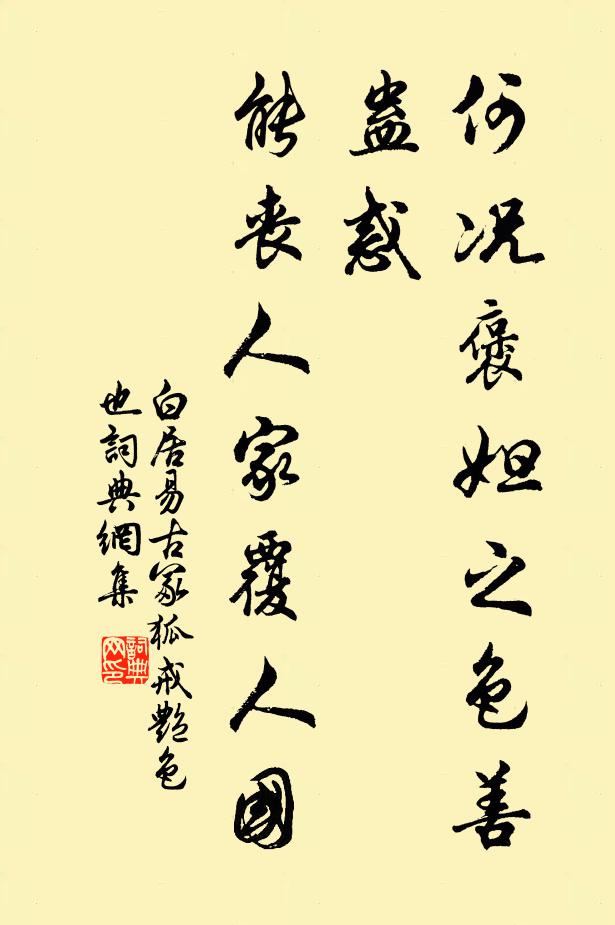 何況褒妲之色善
蠱惑
能喪人家覆人國
白居易古冢狐戒艷色
也詞典網集
詞典
网印